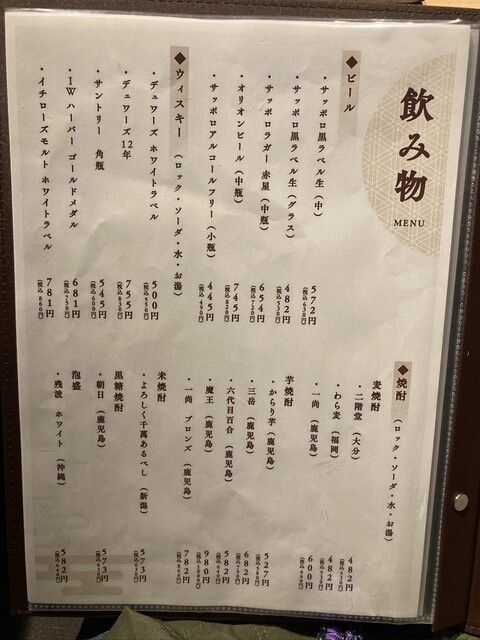 飲み物
MENU
◆ビール
・サッポロ黒ラベル生（中） 572円（税込630円）
・サッポロ黒ラベル生（グラス） 482円（税込530円）
・サッポロラガー 赤星（中瓶） 654円（税込720円）
・オリオンビール（中瓶） 745円（税込820円）
・サッポロアルコールフリー（小瓶） 445円（税込490円）
◆ウィスキー（ロック・ソーダ・水・お湯）
・デュワーズ ホワイトラベル 500円（税込550円）
・デュワーズ12年 755円（税込830円）
・サントリー 角瓶 545円（税込600円）
・IWハーパー ゴールドメダル 681円（税込750円）
・イチローズモルト ホワイトラベル 781円（税込860円）
◆焼酎（ロック・ソーダ・水・お湯）
麦焼酎
・二階堂（大分） 482円（税込530円）
・わら麦（福岡） 482円（税込530円）
・一尚（鹿児島） 600円（税込660円）
芋焼酎
・からり芋（鹿児島） 527円（税込580円）
・三岳（鹿児島） 682円
・六代目百合（鹿児島） 582円（税込640円）
・魔王（鹿児島） 980円
・一尚 ブロンズ（鹿児島） 782円（税込860円）
米焼酎
・よろしく千萬あるべし（新潟） 573円（税込630円）
黒糖焼酎
・朝日（鹿児島） 573円（税込630円）
泡盛
・残波 ホワイト（沖縄） 582円（税込640円）